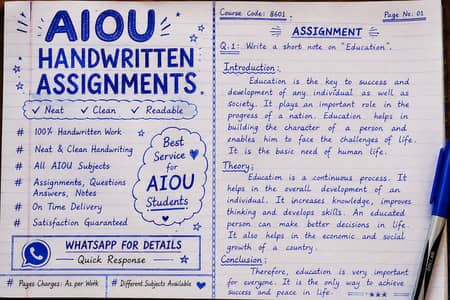 AIOU
HANDWRITTEN
ASSIGNMENTS.
✓ Neat ✓ Clean ✓ Readable
# 100% Handwritten Work
# Neat & Clean Handwriting
# All AIOU Subjects
# Assignments, Questions
Answers, Notes
# On Time Delivery
# Satisfaction Guaranteed
Best
Service
for
AIOU
Students
WHATSAPP FOR DETAILS
Quick Response
# Pages Charges: As per Work
# Different Subjects Available
Course Code: 8601.
Page No: 01
ASSIGNMENT
Q.1: Write a short note on "Education".
Introduction:
Education is the key to success and
development of any individual as well as
society. It plays an important role in the
progress of a nation. Education helps in
building the character of a person and
enables him to face the challenges of life.
It is the basic need of human life.
Theory:
Education is a continuous process. It
helps in the overall development of an
individual. It increases knowledge, improves
thinking and develops skills. An educated
person can make better decisions in life.
It also helps in the economic and social
growth of a country.
Conclusion:
Therefore, education is very important
for everyone. It is the only way to achieve
success and peace in life.